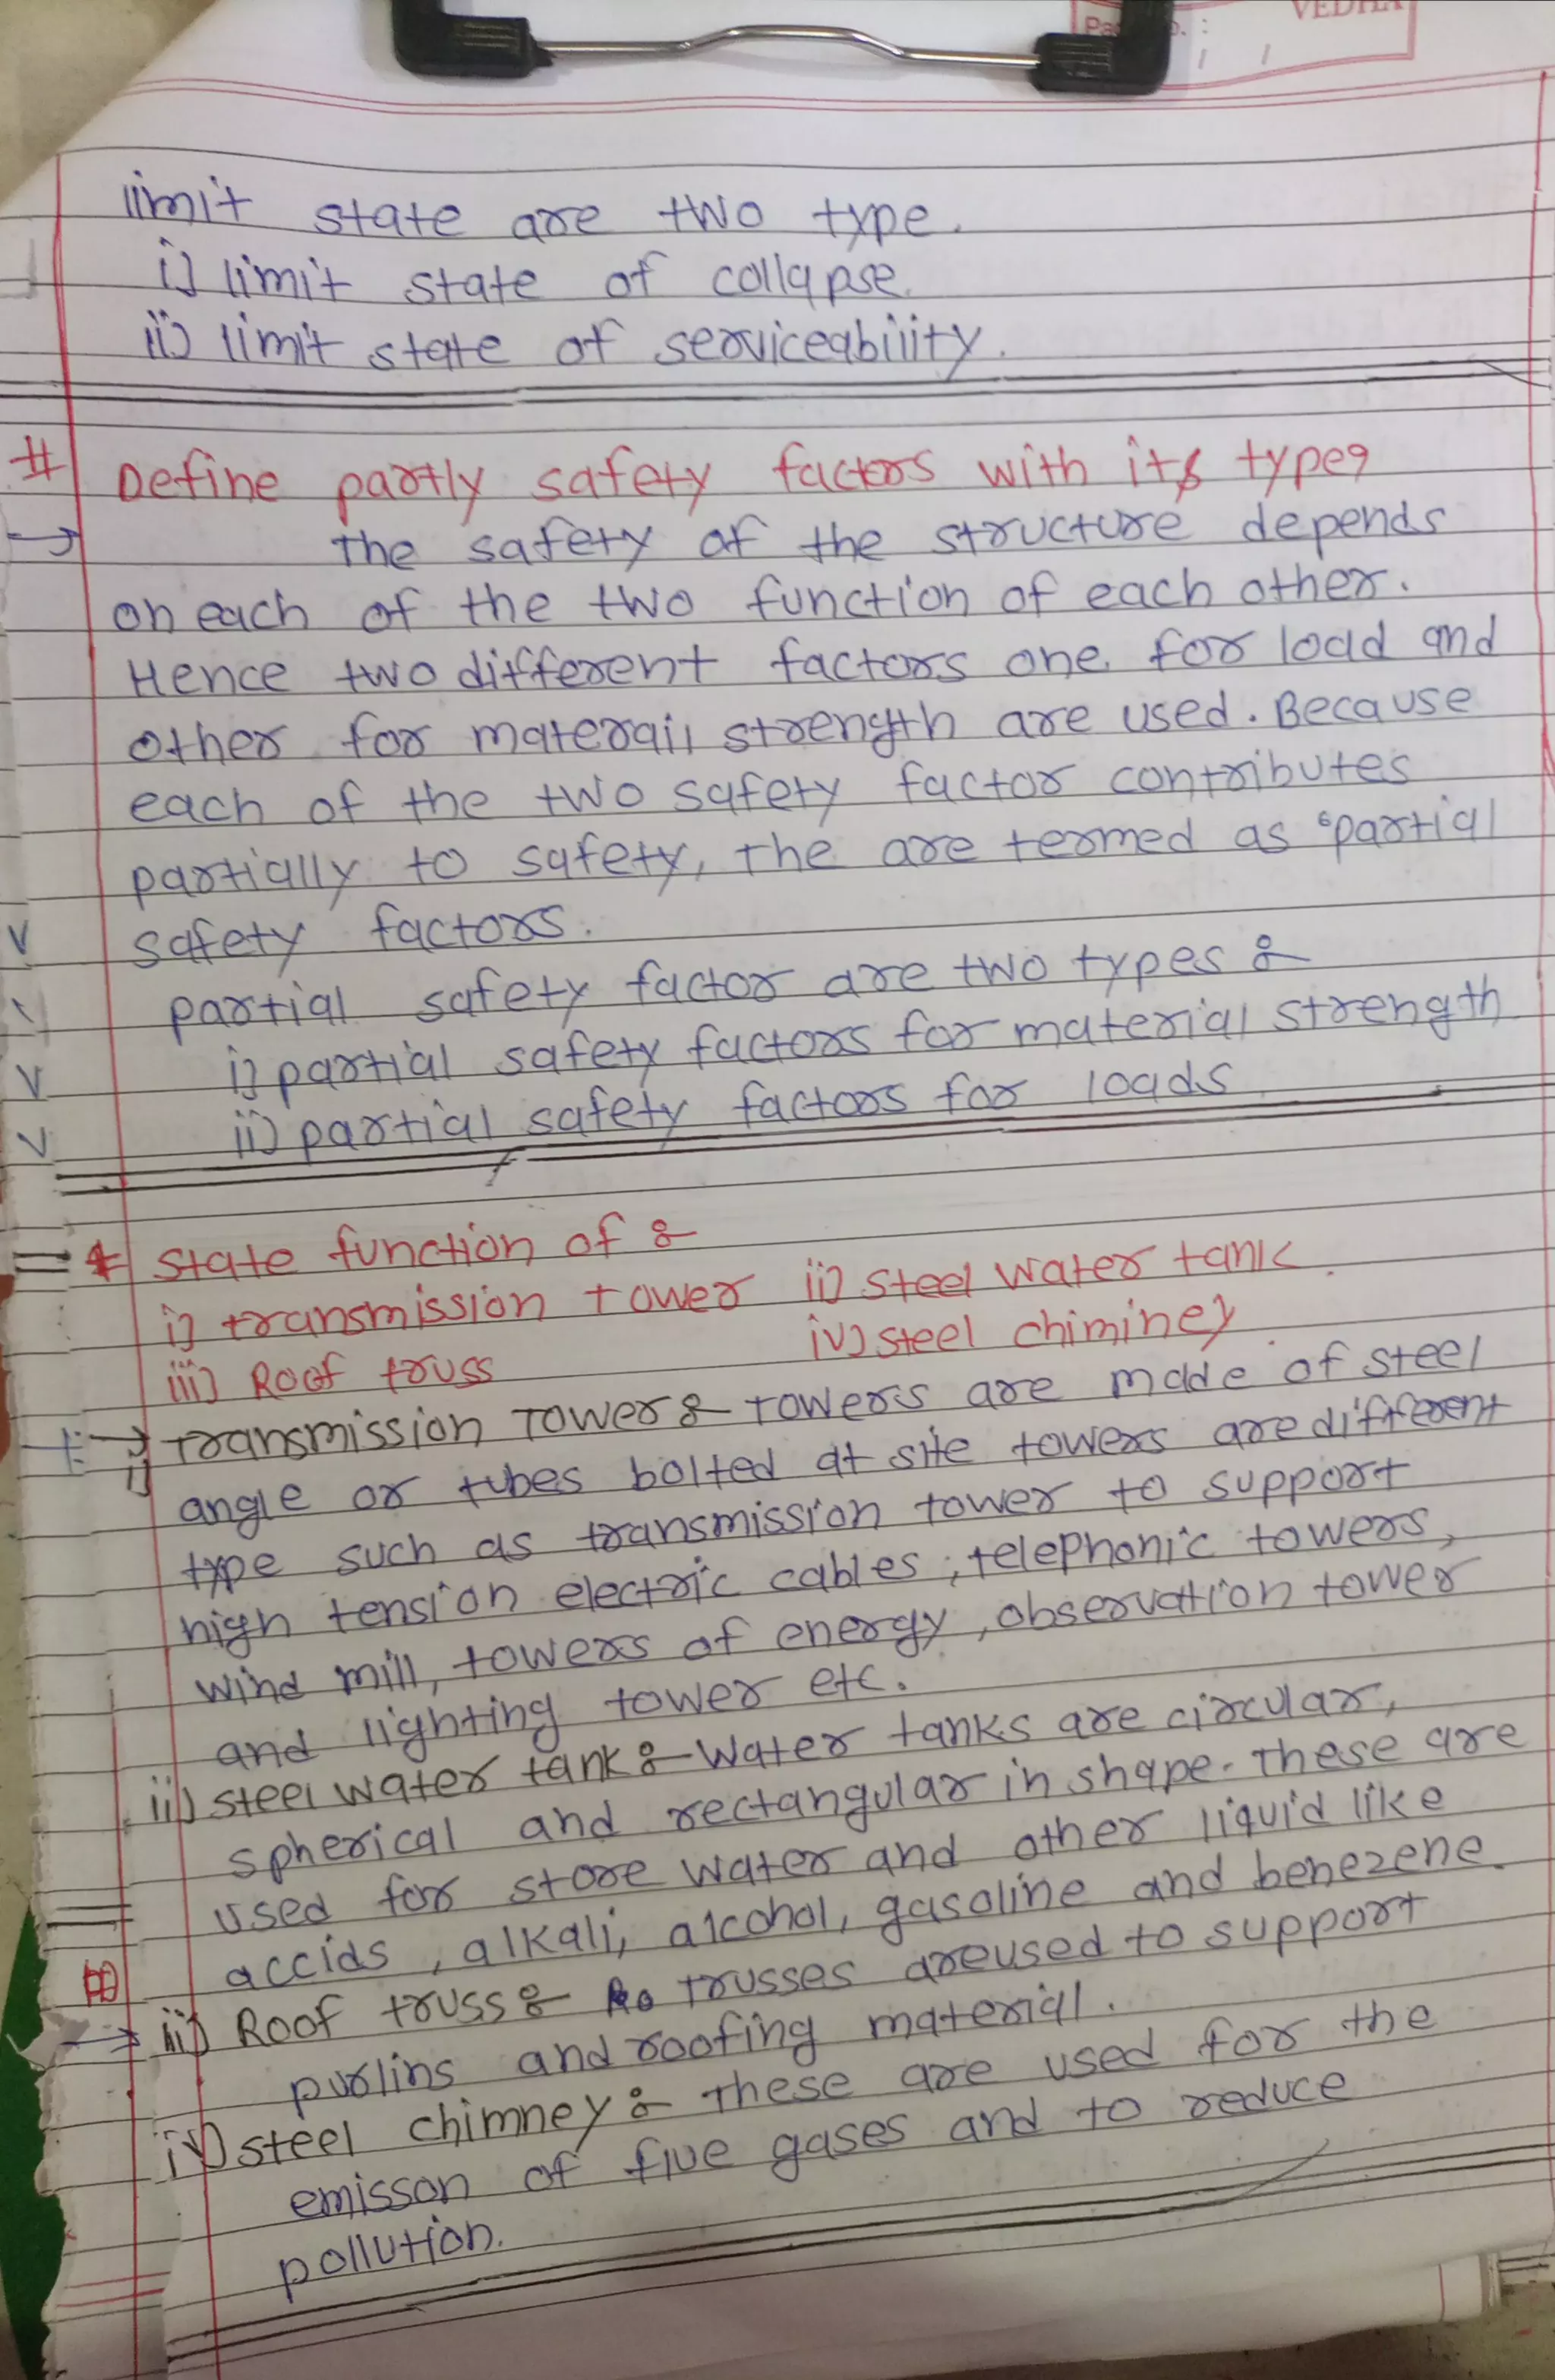 VEDHA
limit state are two type.
i) limit state of collapse.
ii) limit state of serviceability.
# Define partly safety factors with its types
→ The safety of the structure depends
on each of the two function of each other.
Hence two different factors one for load and
other for materail strength are used. Because
each of the two safety factor contributes
partially to safety, the are termed as "partial
safety factors.
partial safety factor are two types :-
i) partial safety factors for material strength
ii) partial safety factors for loads
* state function of :-
i) transmission tower ii) steel water tank.
iii) Roof truss iv) steel chiminey.
→ i) Transmission Tower :- Towers are made of steel
angle or tubes bolted at site towers are different
type such as transmission tower to support
high tension electric cables, telephonic towers,
wind mill, towers of energy, observation tower
and lighting tower etc.
ii) steel water tank :- water tanks are circular,
spherical and rectangular in shape. These are
used for store water and other liquid like
accids, alkali, alcohol, gasoline and benezene.
→ iii) Roof truss :- trusses are used to support
purlins and roofing material.
iv) steel chimney :- These are used for the
emisson of five gases and to reduce
pollution.